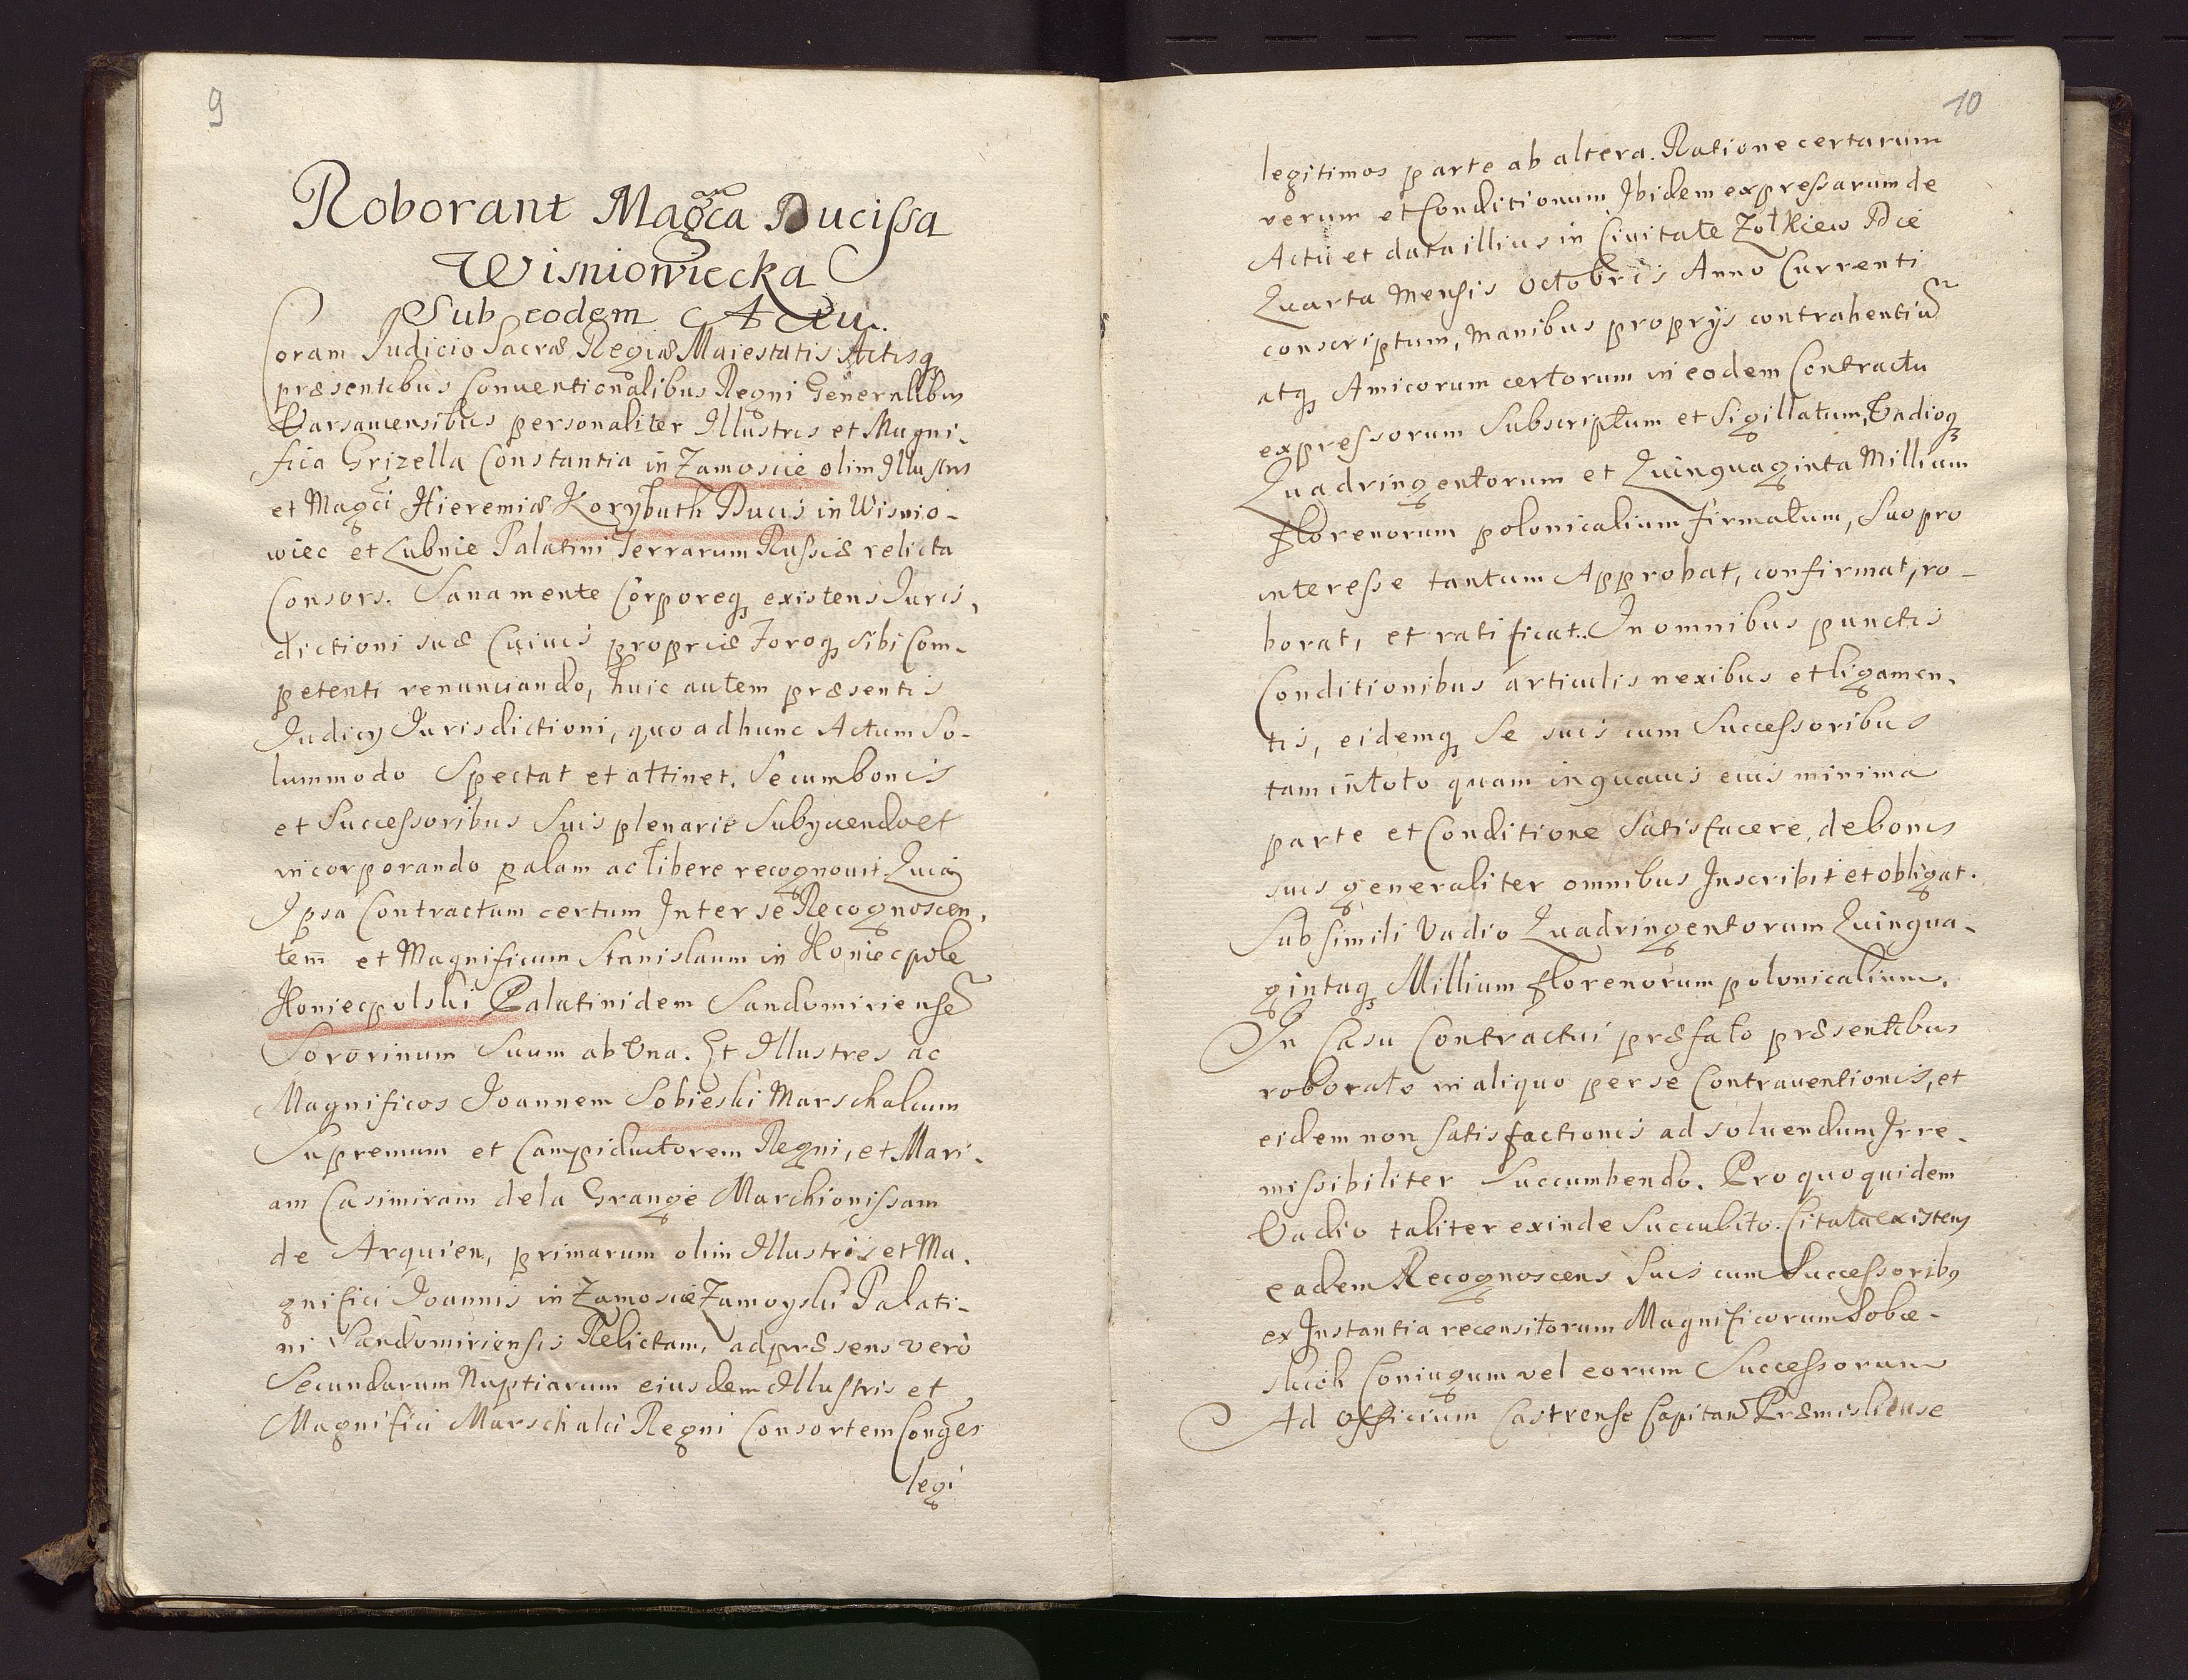 9
Roborant Mag͠ca Ducissa
Wisniowiecka
Sub eodem Actu.
Coram Judicio Sacræ Regiæ Maiestatis Actisq
præsentibus Conuentionalibus Regni Generalibus
Varsauiensibus personaliter Illustris et Magni-
fica Grizella Constantia in Zamoscie olim Illustris
et Magci Hieremiæ Korybuth Ducis in Wisnio-
wiec et Lubnie Palatini Terrarum Russiæ relicta
Consors. Sana mente Corporeq existens Juris-
dictioni suæ Cuiuis propriæ Foroq sibi Com-
petenti renunciando, huic autem præsentis
Judicij Jurisdictioni, quo ad hunc Actum So-
lummodo Spectat et attinet. Se cum bonis
et Successoribus Suis plenarie Subijciendo et
incorporando palam ac libere recognouit Quia
Ipsa Contractum certum Inter se Recognoscen-
tem et Magnificum Stanislaum in Koniecpole
Koniecpolski Palatinidem Sandomiriense͂
Sororinum Suum ab Vna. Et Illustres ac
Magnificos Joannem Sobieski Marschalcum
Supremum et Campiductorem Regni, et Mari-
am Casimiram de la Grange Marchionissam
de Arquien, primarum olim Illustris et Ma-
gnifici Joannis in Zamoscie Zamoyski Palati-
ni Sandomiriensis Relictam, ad præsens verò
Secundarum Nuptiarum eiusdem Illustris et
Magnifici Marschalci Regni Consortem Conges
legi
10
legitimos parte ab altera. Ratione certarum
rerum et Conditionum Ibidem expressarum de
Actu et data illius in Ciuitate Zołkiew Die
Quarta Mensis Octobris Anno Currenti
conscriptum, manibus proprijs contrahentiu͂
atq Amicorum certorum in eodem Contractu
expressorum Subscriptum et Sigillatum, Vadioq
Quadringentorum et Quinquaginta Millium
florenorum polonicalium firmatum, Suo pro
interesse tantum Approbat, confirmat, ro-
borat, et ratificat. In omnibus punctis
Conditionibus articulis nexibus et ligamen-
tis, eidemq Se suis cum Successoribus
tam in toto quam in quauis eius minima
parte et Conditione Satisfacere, de bonis
suis generaliter omnibus Inscribit et obligat.
Sub simili Vadio Quadringentorum Quinqua-
gintaq Millium florenorum polonicalium.
In Casu Contractui præfato præsentibus
roborato in aliquo per se Contrauentionis, et
eidem non satisfactionis ad soluendum Irre-
missibiliter Succumbendo. Pro quo quidem
Vadio taliter exinde Succubito. Citata existens
eadem Recognoscens Suis cum Successoribq
ex Instantia recensitorum Magnificorum Sobie-
skich Coniugum vel eorum Successorum
Ad officium Castrense Capitan͂ Præmisliense